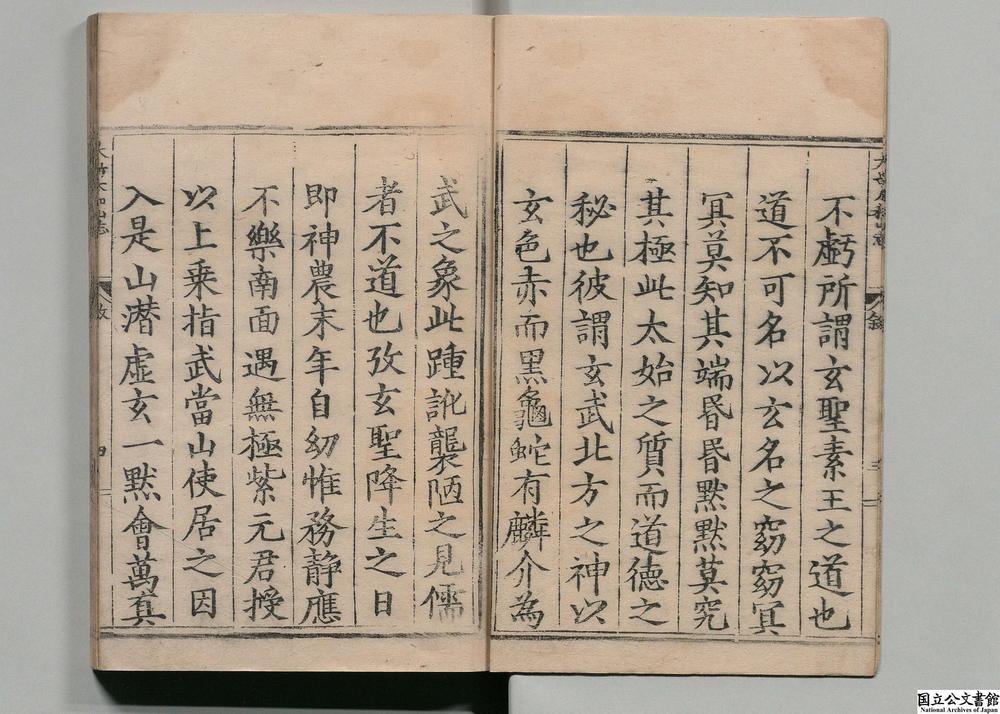 不虧所謂玄聖素王之道也
道不可名以玄名之窈窈冥
冥莫知其端昏昏默默莫究
其極此太始之質而道德之
秘也彼謂玄武北方之神以
玄色赤而黑龜蛇有麟介為
武之象此踵訛襲陋之見儒
者不道也攷玄聖降生之日
即神農末年自幼惟務静應
不樂南面遇無極紫元君授
以上乗指武當山使居之因
入是山潛虚玄一默會萬真
国立公文書館
National Archives of Japan